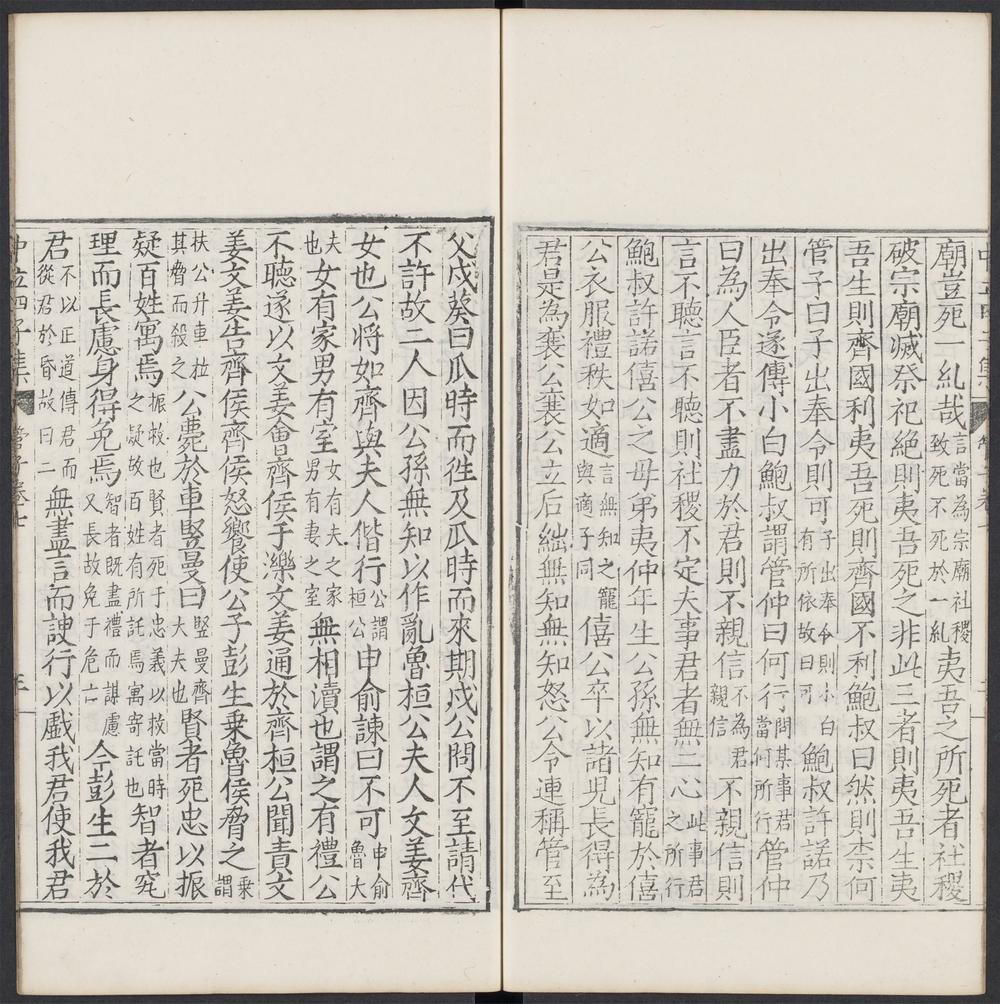 廟豈死一糺哉言當為宗廟社稷致死不死於一糺夷吾之所死者社稷
破宗廟滅祭祀絕則夷吾死之非此三者則夷吾生夷
吾生則齊國利夷吾死則齊國不利鮑叔曰然則柰何
管子曰子出奉令則可子出奉令則小白有所依故曰可鮑叔許諾乃
出奉令遂傅小白鮑叔謂管仲曰何行問某事君行當何所行管仲
曰為人臣者不盡力於君則不親信不為君親信不親信則
言不聽言不聽則社稷不定夫事君者無二心此事君之所行
鮑叔許諾僖公之母弟夷仲年生公孫無知有寵於僖
公衣服禮秩如適言無知之寵與適子同僖公卒以諸兒長得為
君是為襄公襄公立后絀無知無知怒公令連稱管至
父戍葵曰瓜時而徃及瓜時而來期戍公問不至請代
不許故二人因公孫無知以作亂魯桓公夫人文姜齊
女也公將如齊與夫人偕行公謂桓公申俞諫曰不可申俞魯大
夫也女有家男有室女有夫之家男有妻之室無相瀆也謂之有禮公
不聽遂以文姜會齊侯于濼文姜通於齊桓公聞責文
姜文姜告齊侯齊侯怒饗使公子彭生乗魯侯脅之乗謂
扶公升車拉其脅而殺之公薨於車豎曼曰豎曼齊大夫也賢者死忠以振
疑百姓寓焉振救也賢者死于忠義以救當時之疑故百姓有所託焉寓寄託也智者究
理而長慮身得免焉智者既盡禮而謀慮又長故免于危亡今彭生二於
君不以正道傅君而從君於昏故曰二無盡言而諛行以戲我君使我君
中立四子集 管子卷七 三